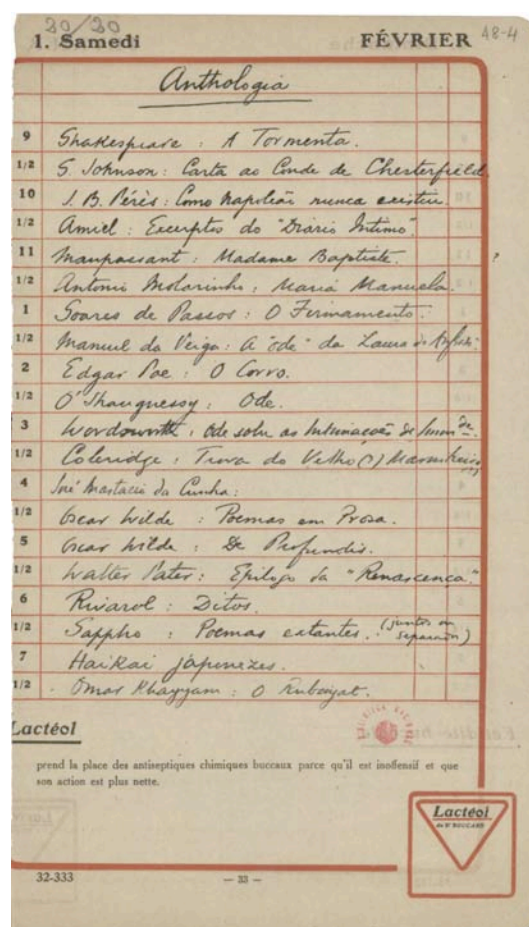 30/20
48-4
1. Samedi FÉVRIER
Anthologia
9 Shakespeare : A Tormenta.
1/2 S. Johnson : Carta ao Conde de Chesterfield.
10 J. B. Pérès : Como Napoleão nunca existiu.
1/2 Amiel : Excerptos do "Diario Intimo".
11 Maupassant : Madame Baptiste. ?
1/2 Antonio Molarinho : Maria Manuela.
1 Soares de Passos : O Firmamento.
1/2 Manuel da Veiga : A "ode" da Laura de
2 Edgar Poe : O Corvo.
1/2 O'Shaugnessy : Ode.
3 Wordsworth : Ode sobre as Intimações de
1/2 Coleridge : Trova do Velho (?) Marinheiro
4 José Anastacio da Cunha :
1/2 Oscar Wilde : Poemas em Prosa.
5 Oscar Wilde : De Profundis.
1/2 Walter Pater : Epilogo da "Renascença".
6 Rivarol : Ditos.
1/2 Sappho : Poemas extantes. (juntos ou separados)
7 Haikai japonezes.
1/2 Omar Khayyam : O Rubaiyat.
Lactéol
prend la place des antiseptiques chimiques buccaux parce qu'il est inoffensif et que
son action est plus nette.
Lactéol
du Dr BOUCARD
32-333 — 33 —